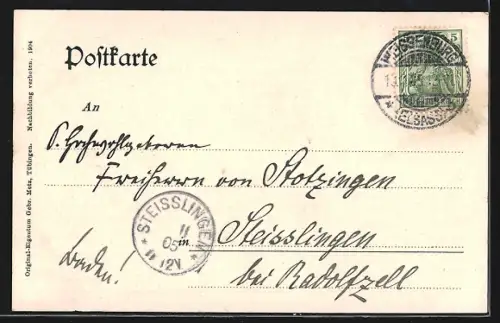 Postkarte
5
WEISSENBURG
(ELSASS)
An
S. Hochwohlgeboren
Freiherrn von Stotzingen
STEISSLINGEN
11
05
12V
in Steisslingen
bei Radolfzell
Baden!
Original-Eigentum Gebr. Metz, Tübingen. Nachbildung verboten. 1904